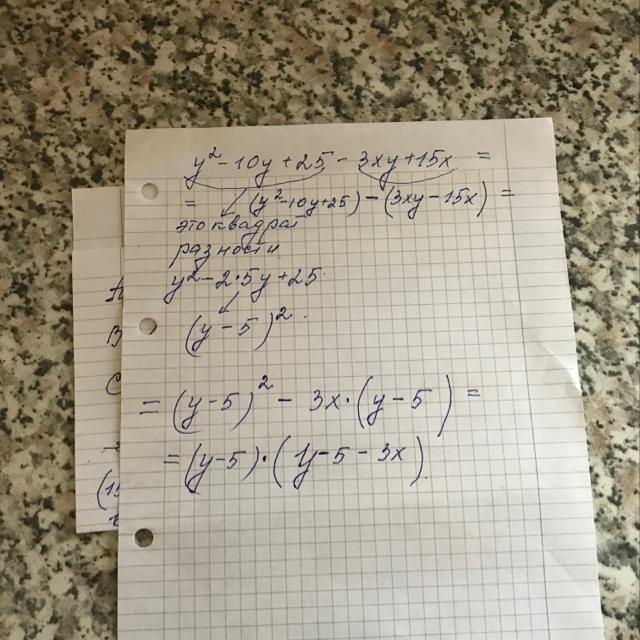 y²-10y+25-3xy+15x =
= (y²-10y+25)-(3xy-15x) =
это квадрат
разности
y²-2·5y+25
(y-5)².
= (y-5)² - 3x·(y-5) =
= (y-5)·(y-5-3x)
В
С